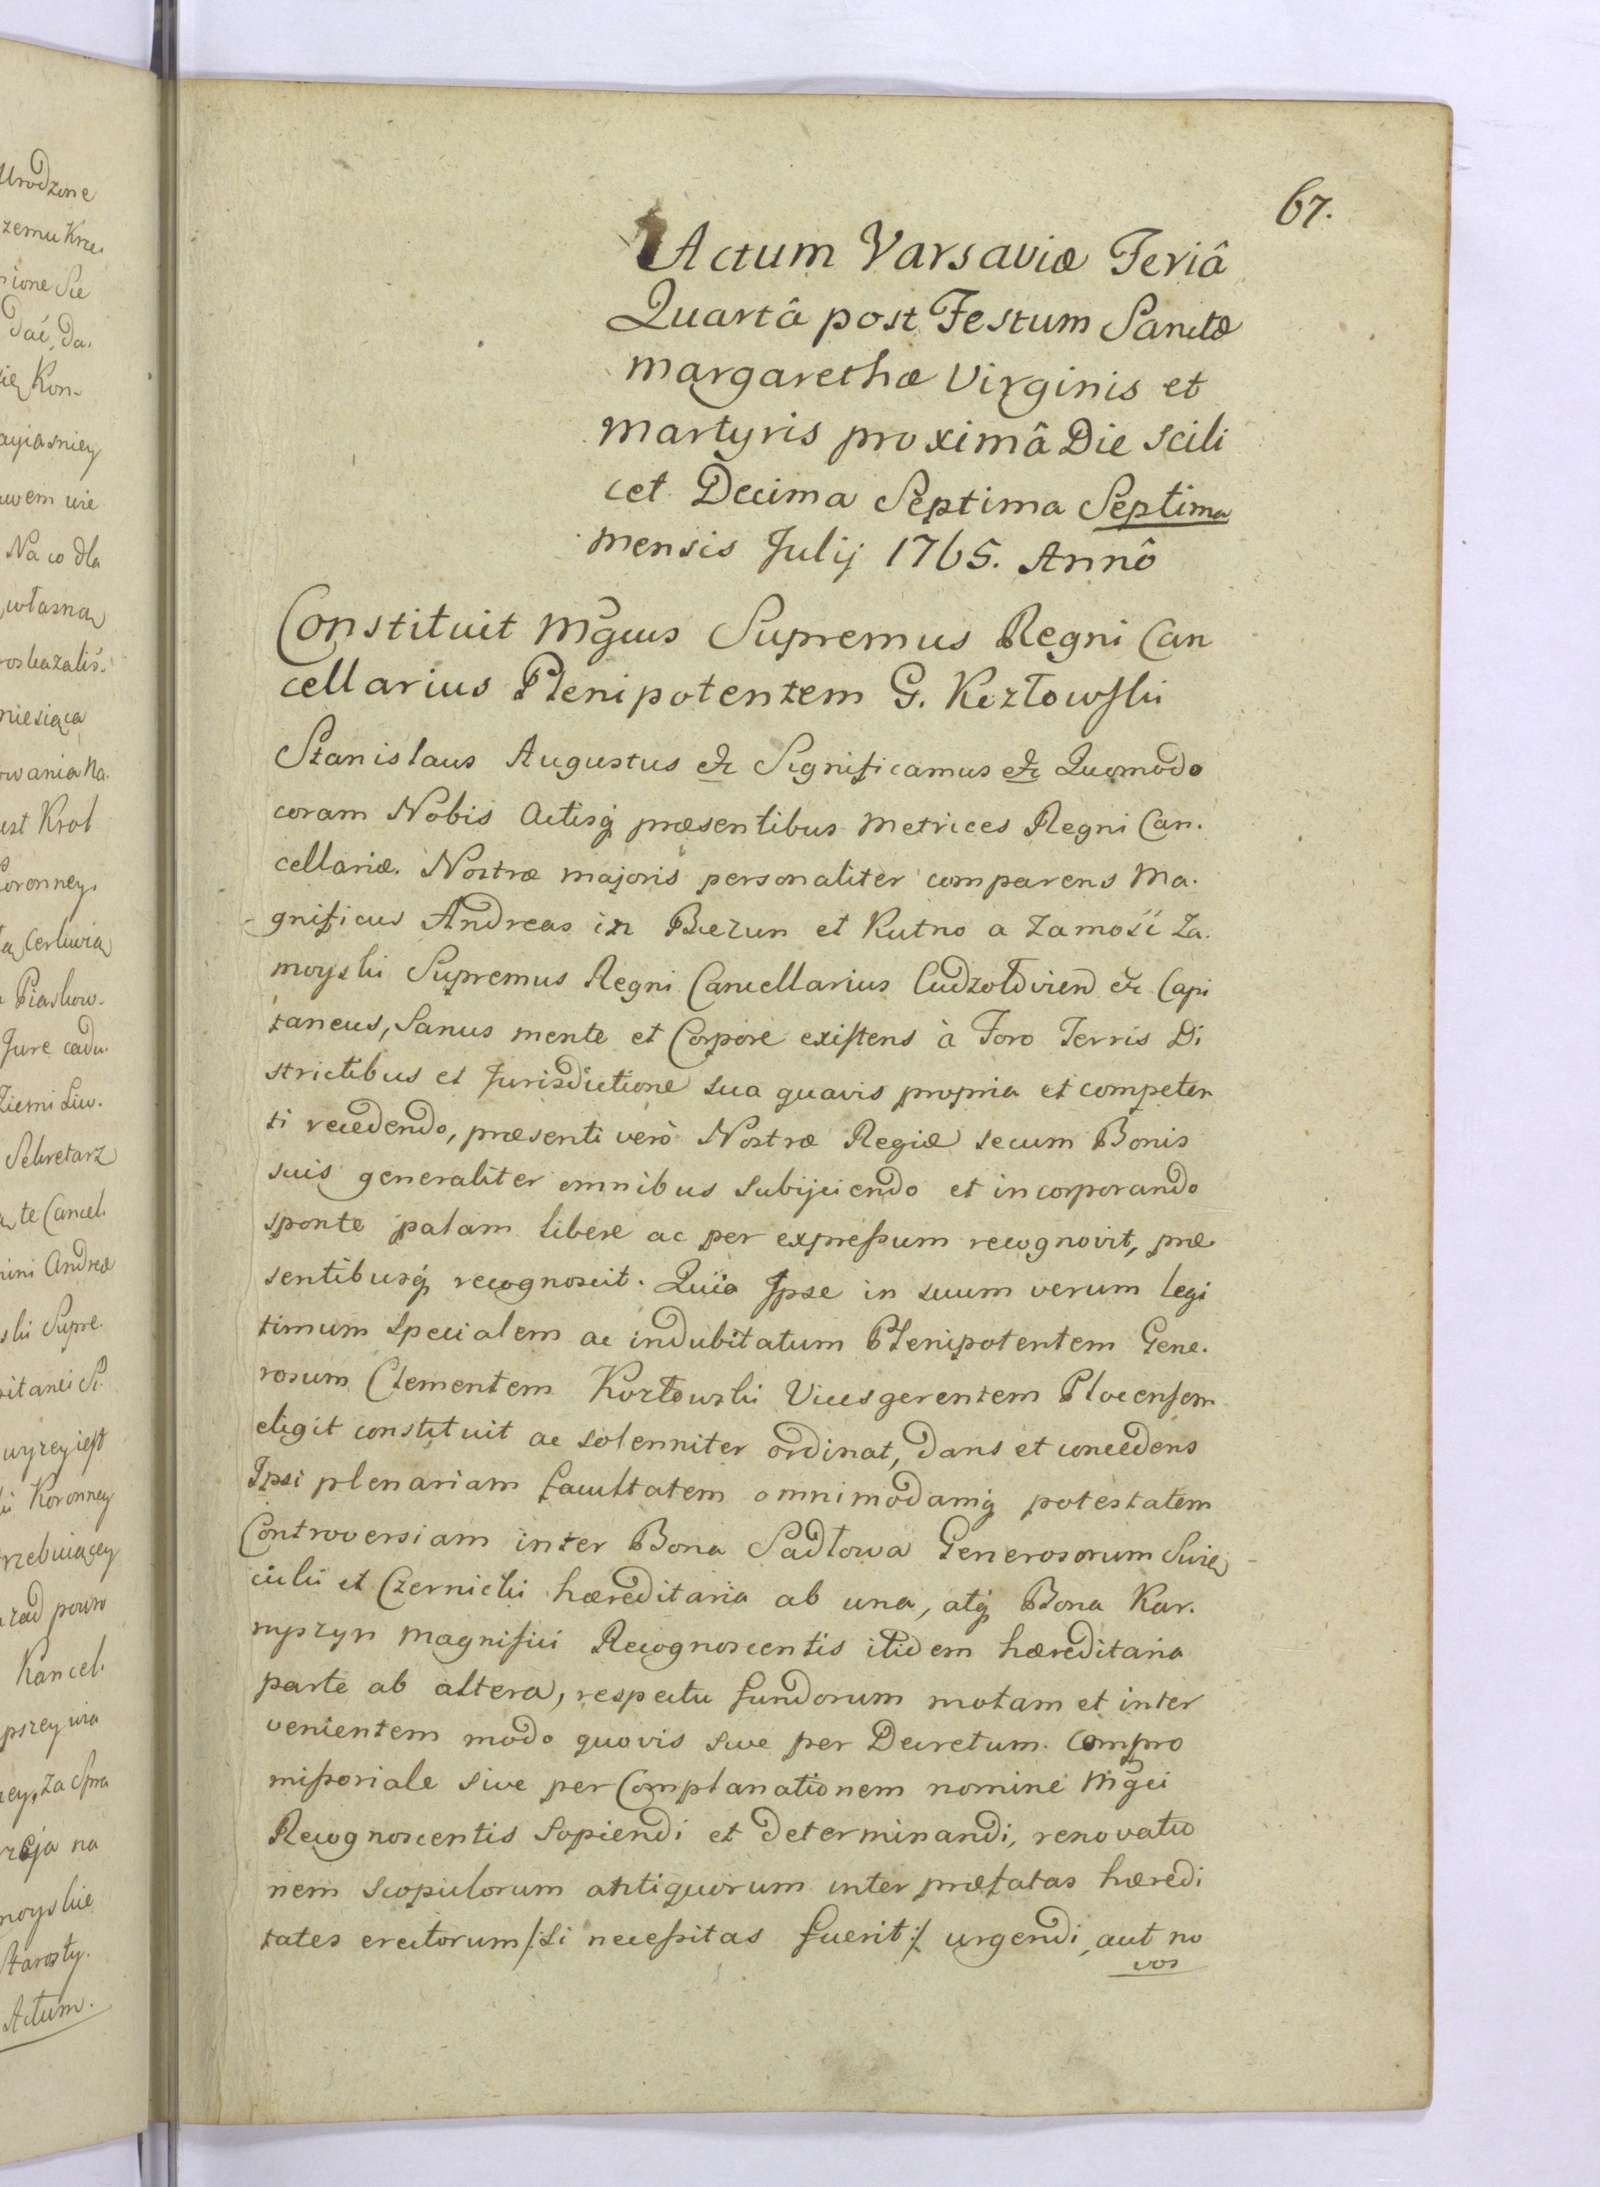 Urodzone
zemu Krze.
nione Sie
dać, Da.
Kon-
ayiasniey
Na co dla
własna
roskazaliś.
miesiąca
owania Na.
ust Krol
Koronney.
Cerkwia
Piaskow.
Jure cadu.
Ziemi Liw.
Sekretarz
te Cancel.
mini Andreæ
ski Supre.
pitanei
wyzey iest
Koronney
Kancel.
Starosty.
Actum.
67.
Actum Varsaviæ Feriâ
Quartâ post Festum Sanctæ
Margarethæ Virginis et
Martyris proximâ Die scili
cet Decima Septima Septima
Mensis Julij 1765. Annô
Constituit Mgcus Supremus Regni Can
cellarius Plenipotentem G. Kozłowski
Stanislaus Augustus &c Significamus &c Quomodo
coram Nobis Actisq; præsentibus Metrices Regni Can.
cellariæ. Nostræ majoris personaliter comparens Ma.
gnificus Andreas in Biezun et Kutno a Zamość Za.
moyski Supremus Regni Cancellarius &c Capi
taneus, Sanus mente et Corpore existens à Foro Terris Di
strictibus et Jurisdictione sua quavis propria et competen
ti recedendo, præsenti verò Nostræ Regiæ secum Bonis
suis generaliter omnibus subijciendo et incorporando
sponte palam libere ac per expressum recognovit, præ
sentibusq; recognoscit. Quia Ipse in suum verum legi
timum specialem ac indubitatum Plenipotentem Gene.
rosum Clementem Kozłowski Vicesgerentem Plocensem
eligit constituit ac solenniter ordinat, dans et concedens
Ipsi plenariam facultatem omnimodamq; potestatem
Controversiam inter Bona Sadłowa Generosorum Swię
cicki et Czernicki hæreditaria ab una, atq; Bona Kar.
nyszyn Magnifici Recognoscentis itidem hæreditaria
parte ab altera, respectu fundorum motam et inter
venientem modo quovis sive per Decretum. Compro
missoriale sive per Complanationem nomine Mgci
Recognoscentis Sopiendi et determinandi, renovatio
nem scopulorum antiquorum inter præfatas hæredi
tates erectorum /:si necessitas fuerit:/ urgendi, aut no
vos